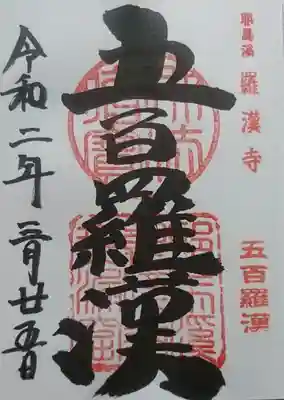 耶馬溪 羅漢寺
五百羅漢
五百羅漢
令和二年三月廿五日